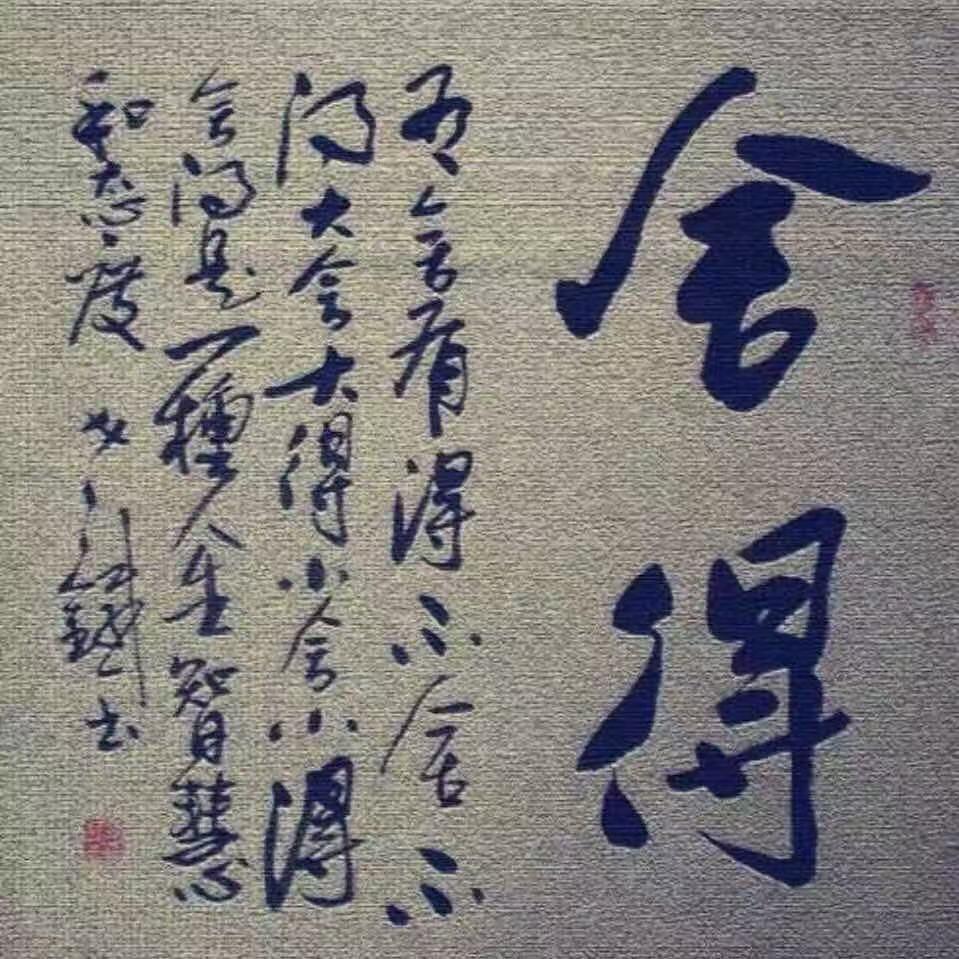 舍得
有舍有得不舍不
得大舍大得小舍小得
舍得是一種人生智慧
和态度 书